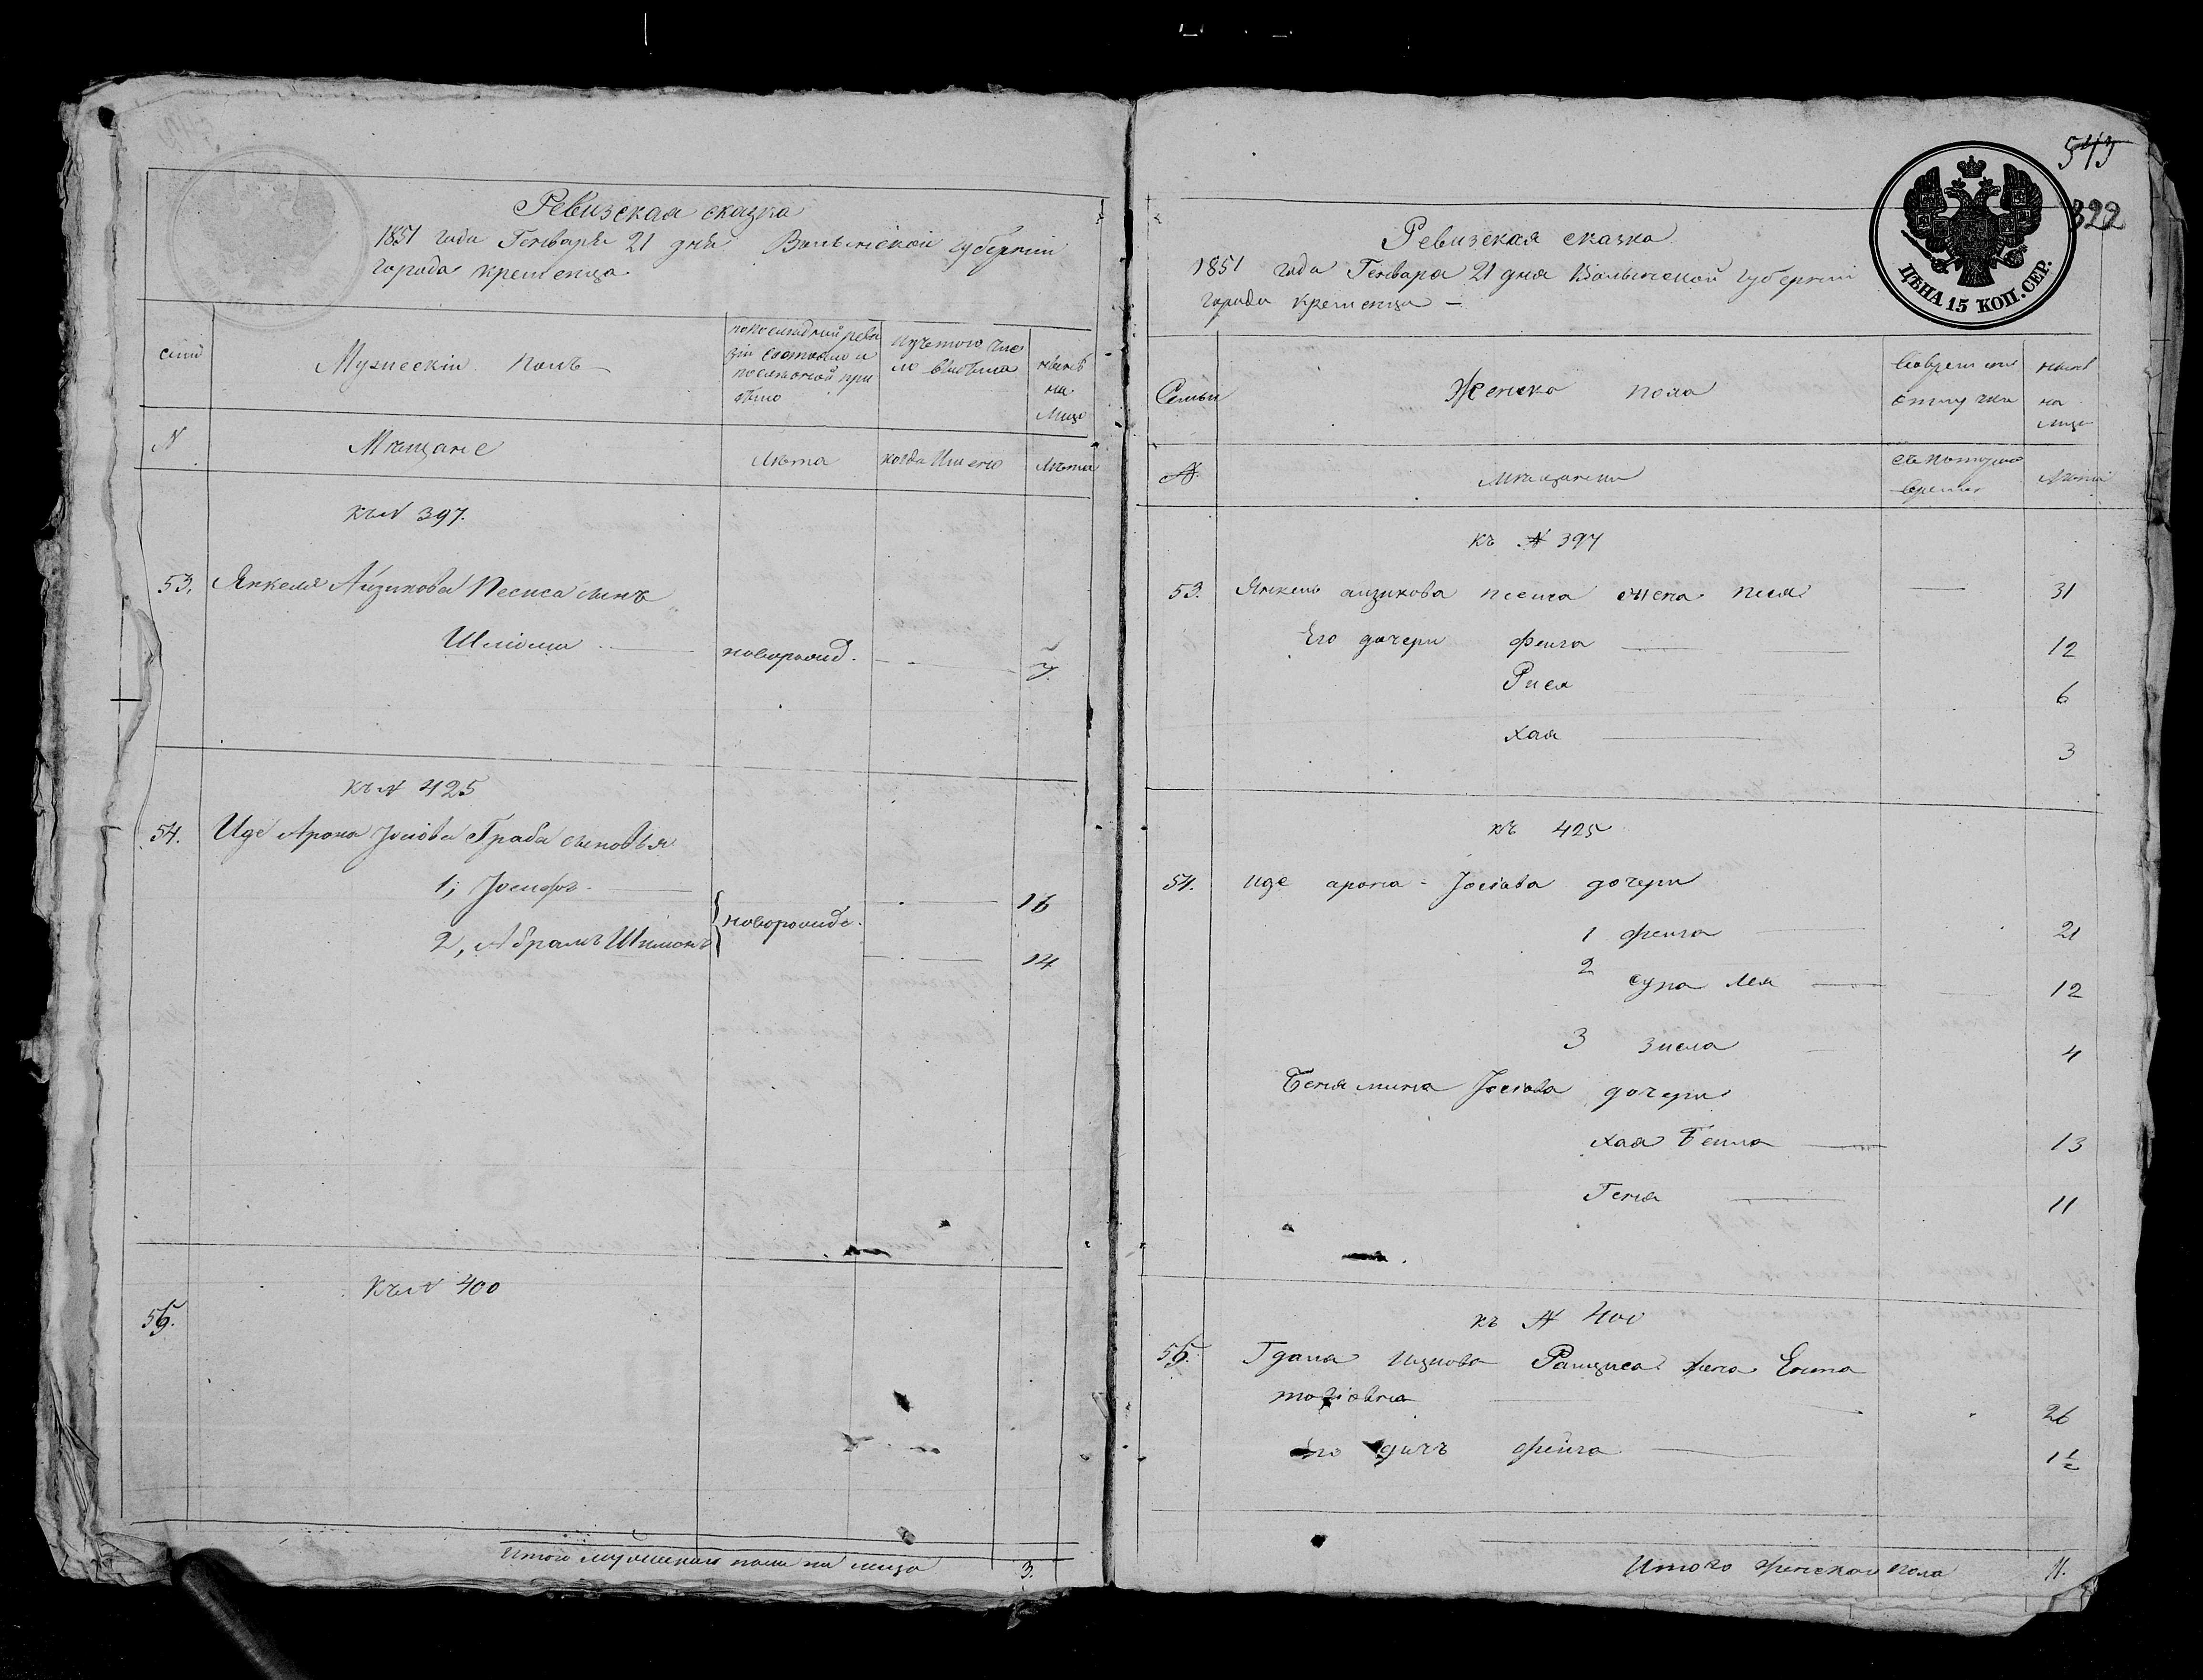 Ревизская сказка
1851 года Генваря 21 дня Волынской губернiи
города Кременца
Мужескiй полъ
по последней реви
зiи состояло и
после оной при
было
изъ того чис
ло выбыло
ныне
на
лицо
N
Мещане
Лета
когда имено
Лета
къ N 397.
53. Янкеля Айзикова Песиса сынъ
Шлiома
новорожд.
7
къ N 425
54. Иде Арона Iосiова Граба сыновья
1, Iосифъ
16
новорожд.
2, Абрамъ Шимонъ
14
къ N 400
55.
Итого мужескаго пола на лицо 3.
543
322
ЦѢНА 15 КОП. СЕР.
Ревизская сказка
1851 года Генваря 21 дня Волынской губернiи
города Кременца
Семьи
Женска пола
ныне
на
лицо
N
Мещанки
Лета
къ N 397
53. Янкель Айзикова Песиса жена Песя 31
Его дочери Фейга 12
Рися 6
Хая 3
къ 425
54. Иде Арона Iосiова дочери
1 Фейга 21
2 Сура Лея 12
3 Зисла 4
Бениамина Iосiова дочери
Хая Бейла 13
Геня 11
къ N 400
55. Ицкова жена Ента
26
Его дочь Фейга 1½
Итого женскаго пола 11.